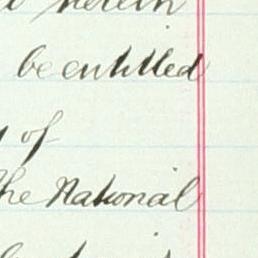 herein
be entitled
of
the National